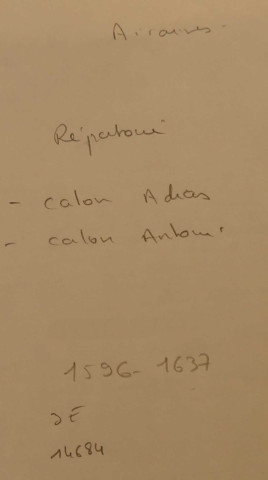 Airaines.
Répertoire
- Calon Adras
- Calon Antoine
1596-1637
2E
14684